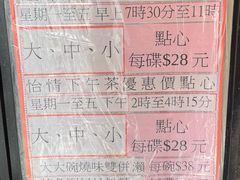 星期一至五 早上 7時30分至11時
大、中、小 點心
每碟$28元
怡情下午茶優惠價點心
星期一至五 下午 2時至4時15分
大、中、小 點心
每碟$28元
大大碗燒味雙併瀨 每碗$38元